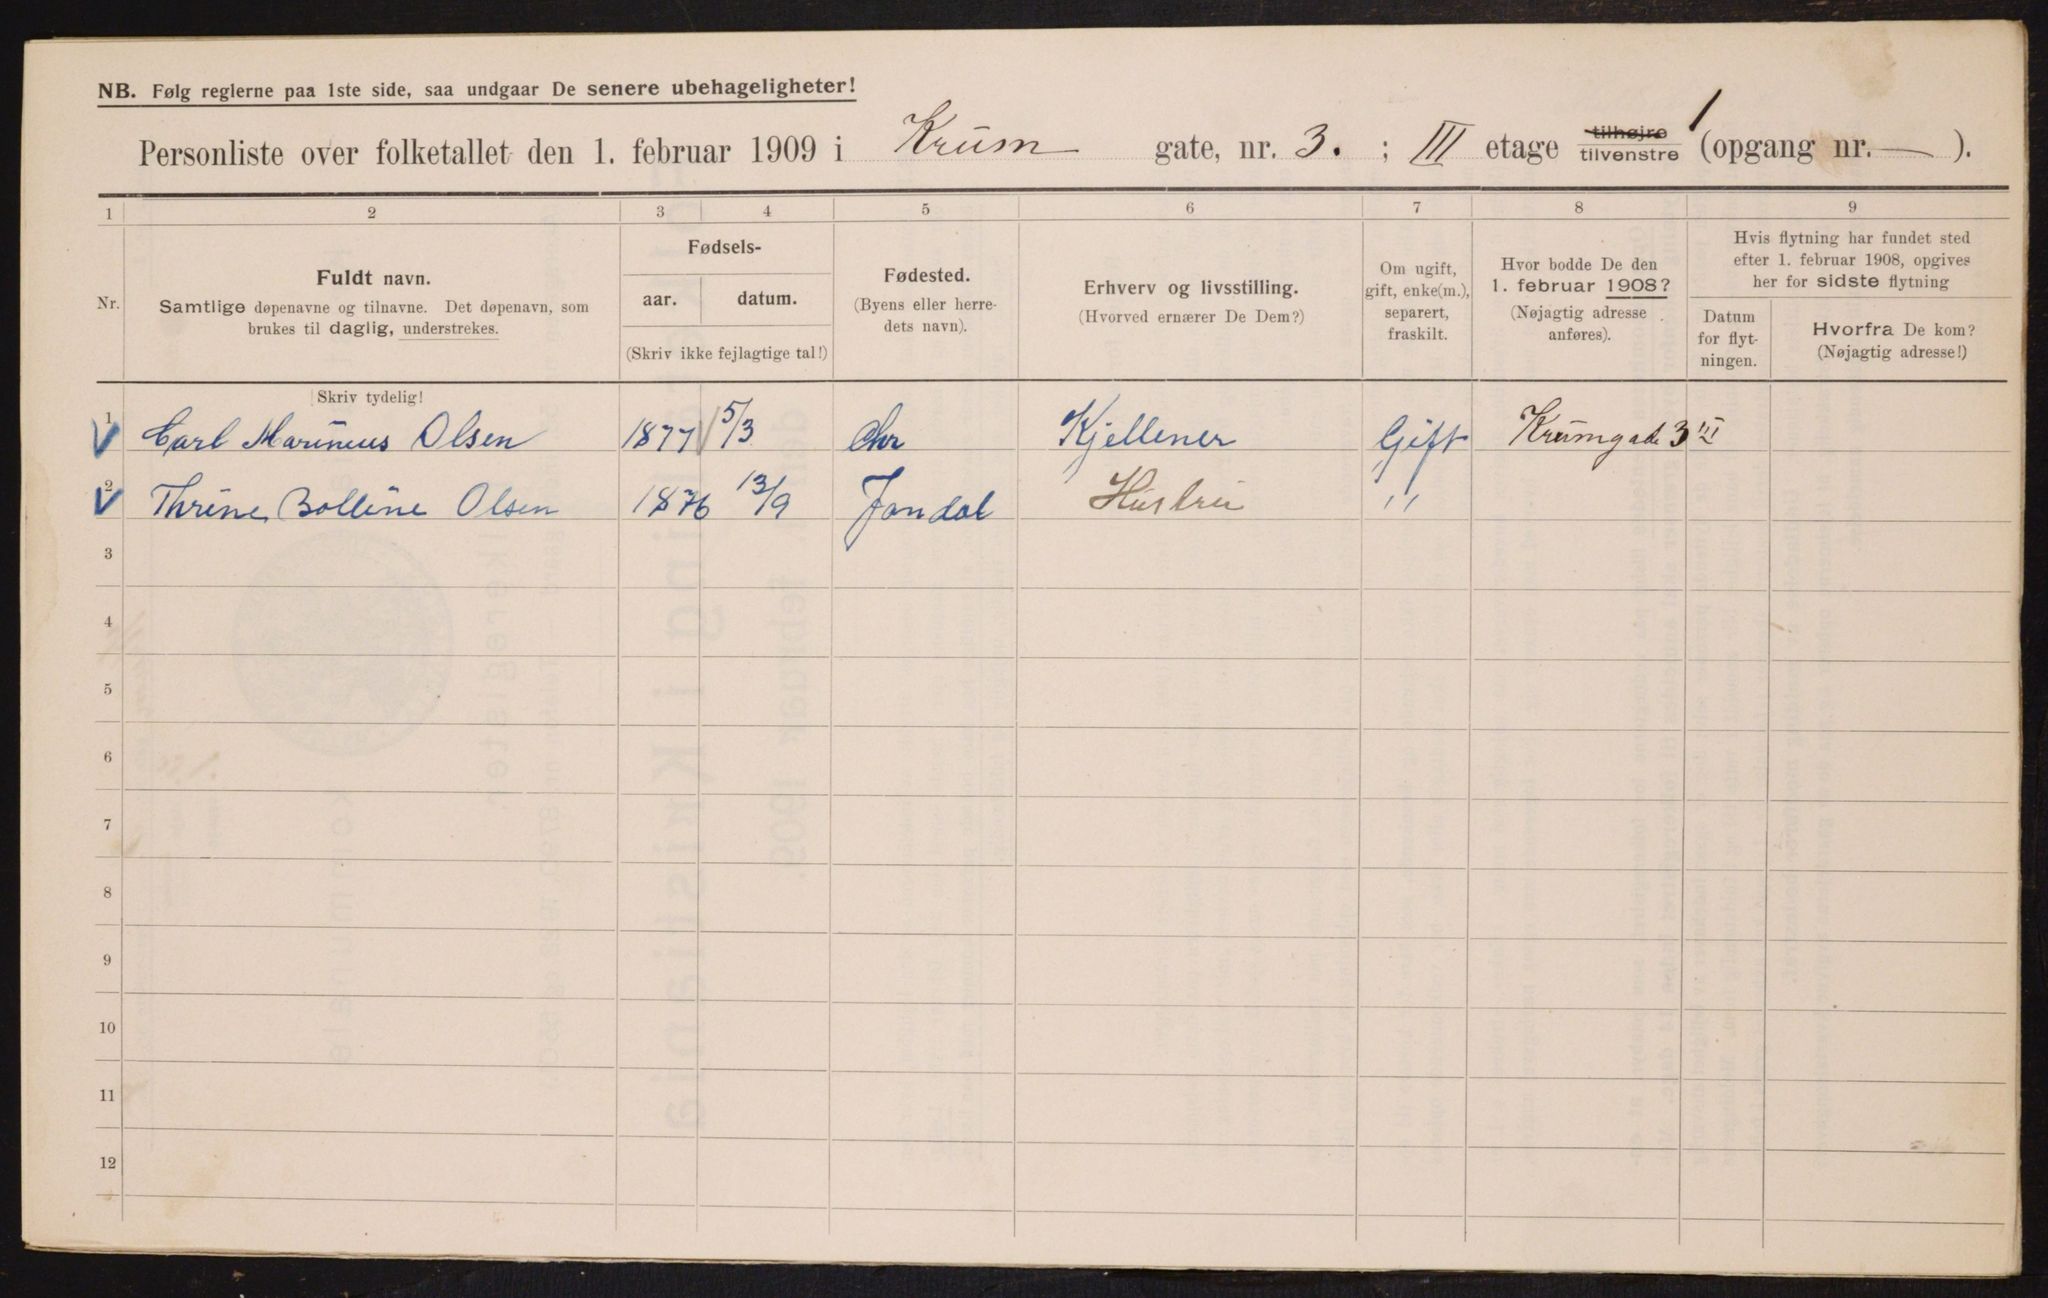 NB. Følg reglerne paa 1ste side, saa undgaar De senere ubehageligheter!
1
Personliste over folketallet den 1. februar 1909 i Krum gate, nr. 3. ; III etage tilhøjre tilvenstre (opgang nr. — ).
1 2 3 4 5 6 7 8 9
Nr.
Fuldt navn.
Samtlige døpenavne og tilnavne. Det døpenavn, som
brukes til daglig, understrekes.
Fødsels-
aar. datum.
(Skriv ikke fejlagtige tal!)
Fødested.
(Byens eller herre-
dets navn).
Erhverv og livsstilling.
(Hvorved ernærer De Dem?)
Om ugift,
gift, enke(m.),
separert,
fraskilt.
Hvor bodde De den
1. februar 1908?
(Nøjagtig adresse
anføres).
Hvis flytning har fundet sted
efter 1. februar 1908, opgives
her for sidste flytning
Datum
for flyt-
ningen.
Hvorfra De kom?
(Nøjagtig adresse!)
Skriv tydelig!
1 Carl Marinius Olsen 1877 5/3 Chr Kjellener Gift Krumgade 3 III
2 Thrine Bolline Olsen 1876 13/9 Jondal Hustru "
3
4
5
6
7
8
9
10
11
12